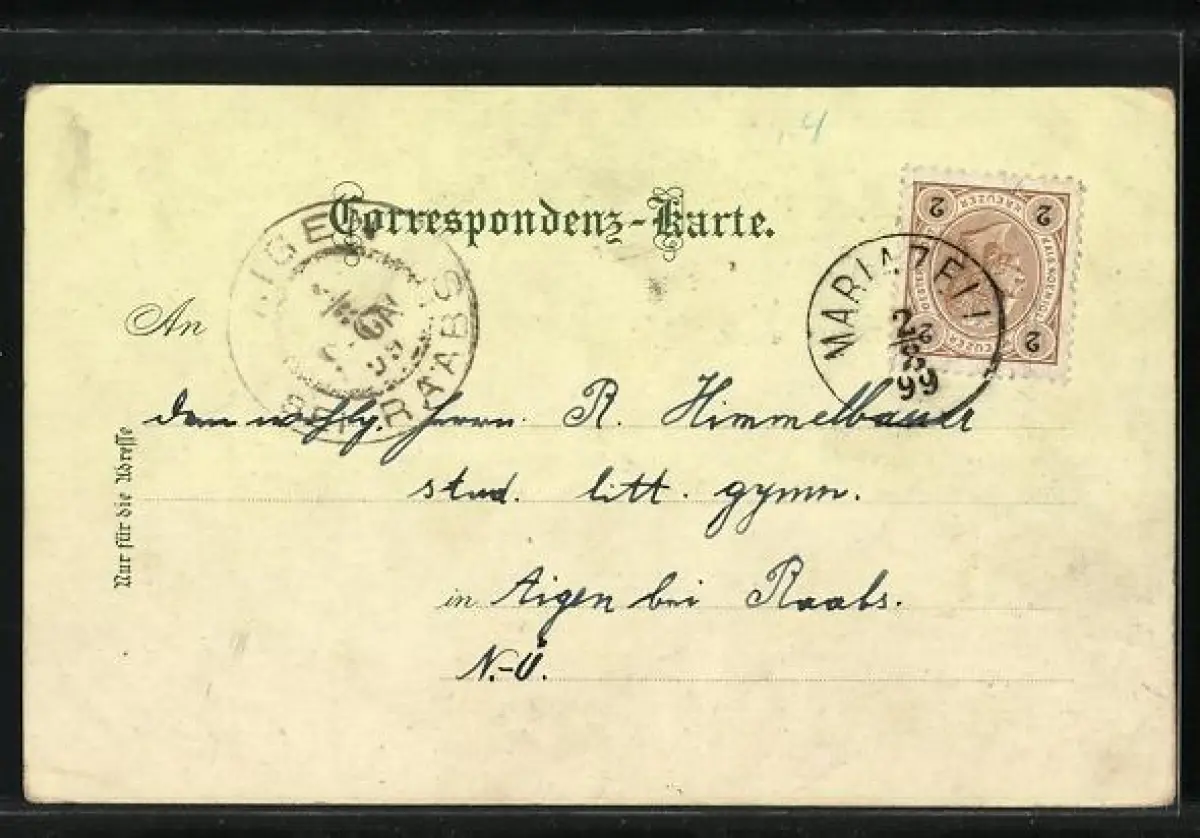 4
Correspondenz-Karte.
2 KREUZER 2
2 2
MARIAZELL
2/8
99
AIGEN
BEI RAABS
An
dem wohlg. Herrn R. Himmelbauer
stud. litt. gymn.
in Aigen bei Raabs.
N.-Ö.
Nur für die Adresse